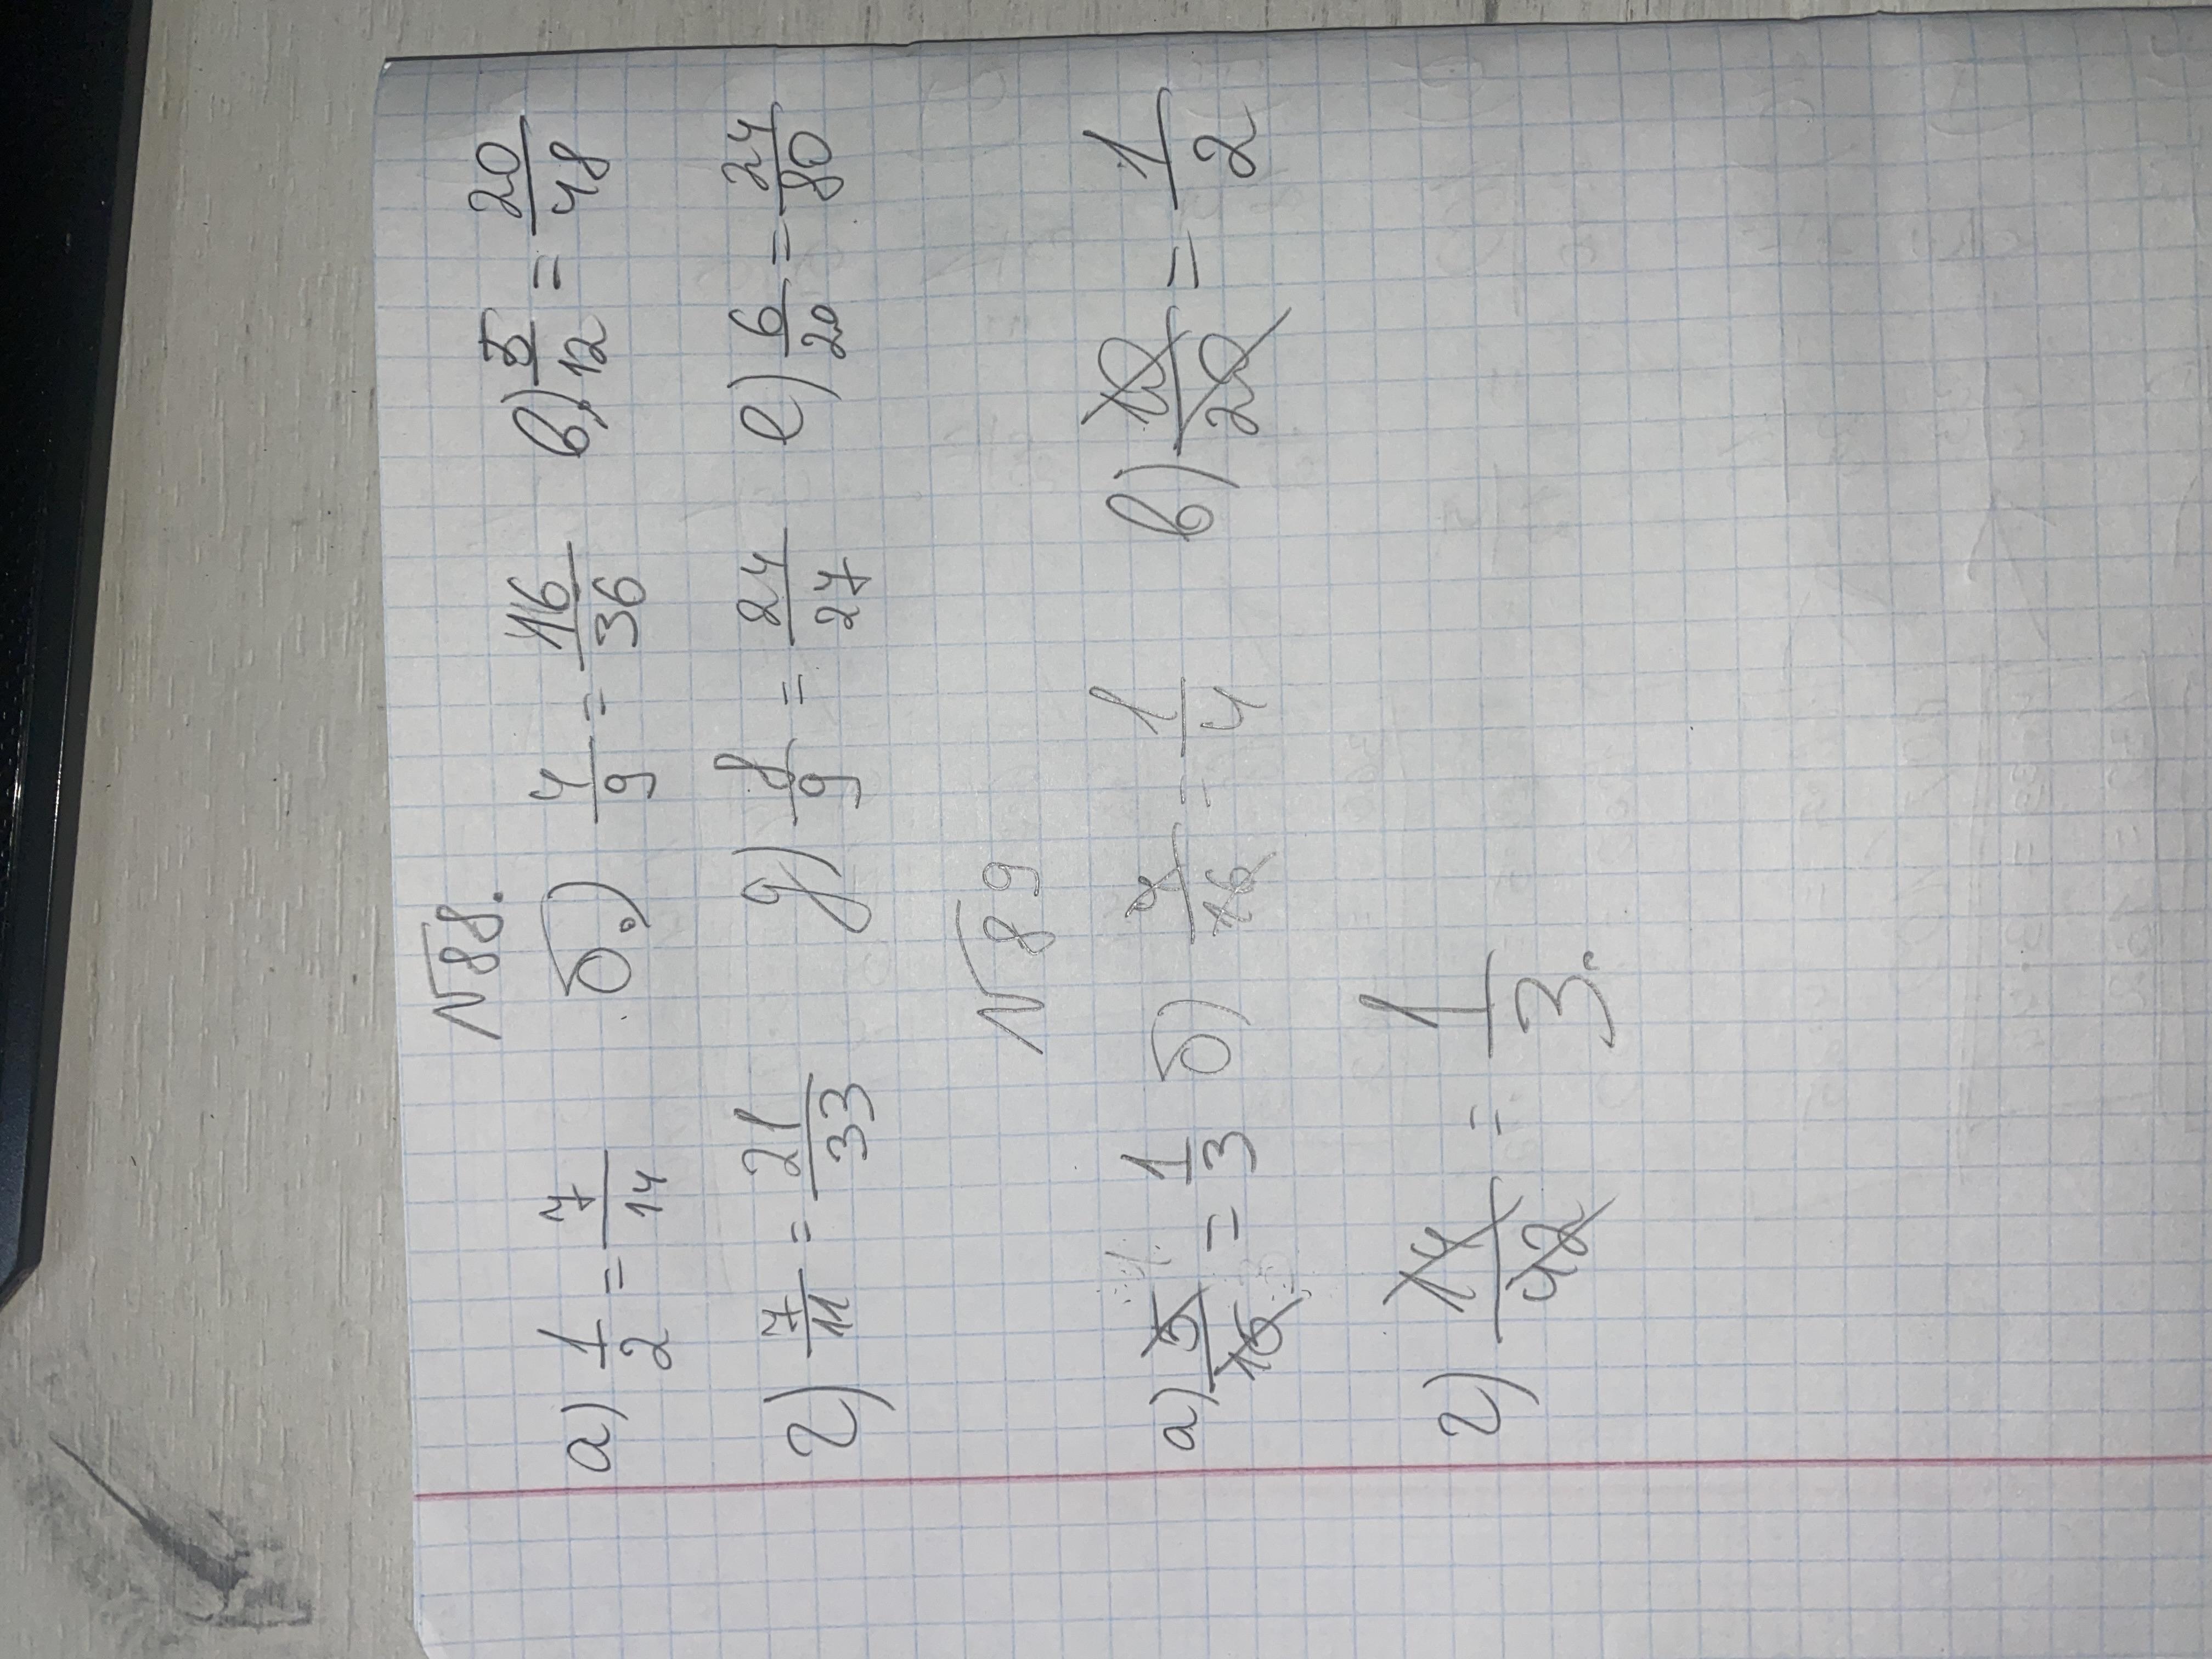 № 88.
а) 1/2 = 7/14 б.) 4/9 = 16/36 в) 5/12 = 20/48
г) 7/11 = 21/33 д) 8/9 = 24/27 е) 6/20 = 24/80
№ 89
а) 5/15 = 1/3 б) 4/16 = 1/4 в) 10/20 = 1/2
г) 14/42 = 1/3.